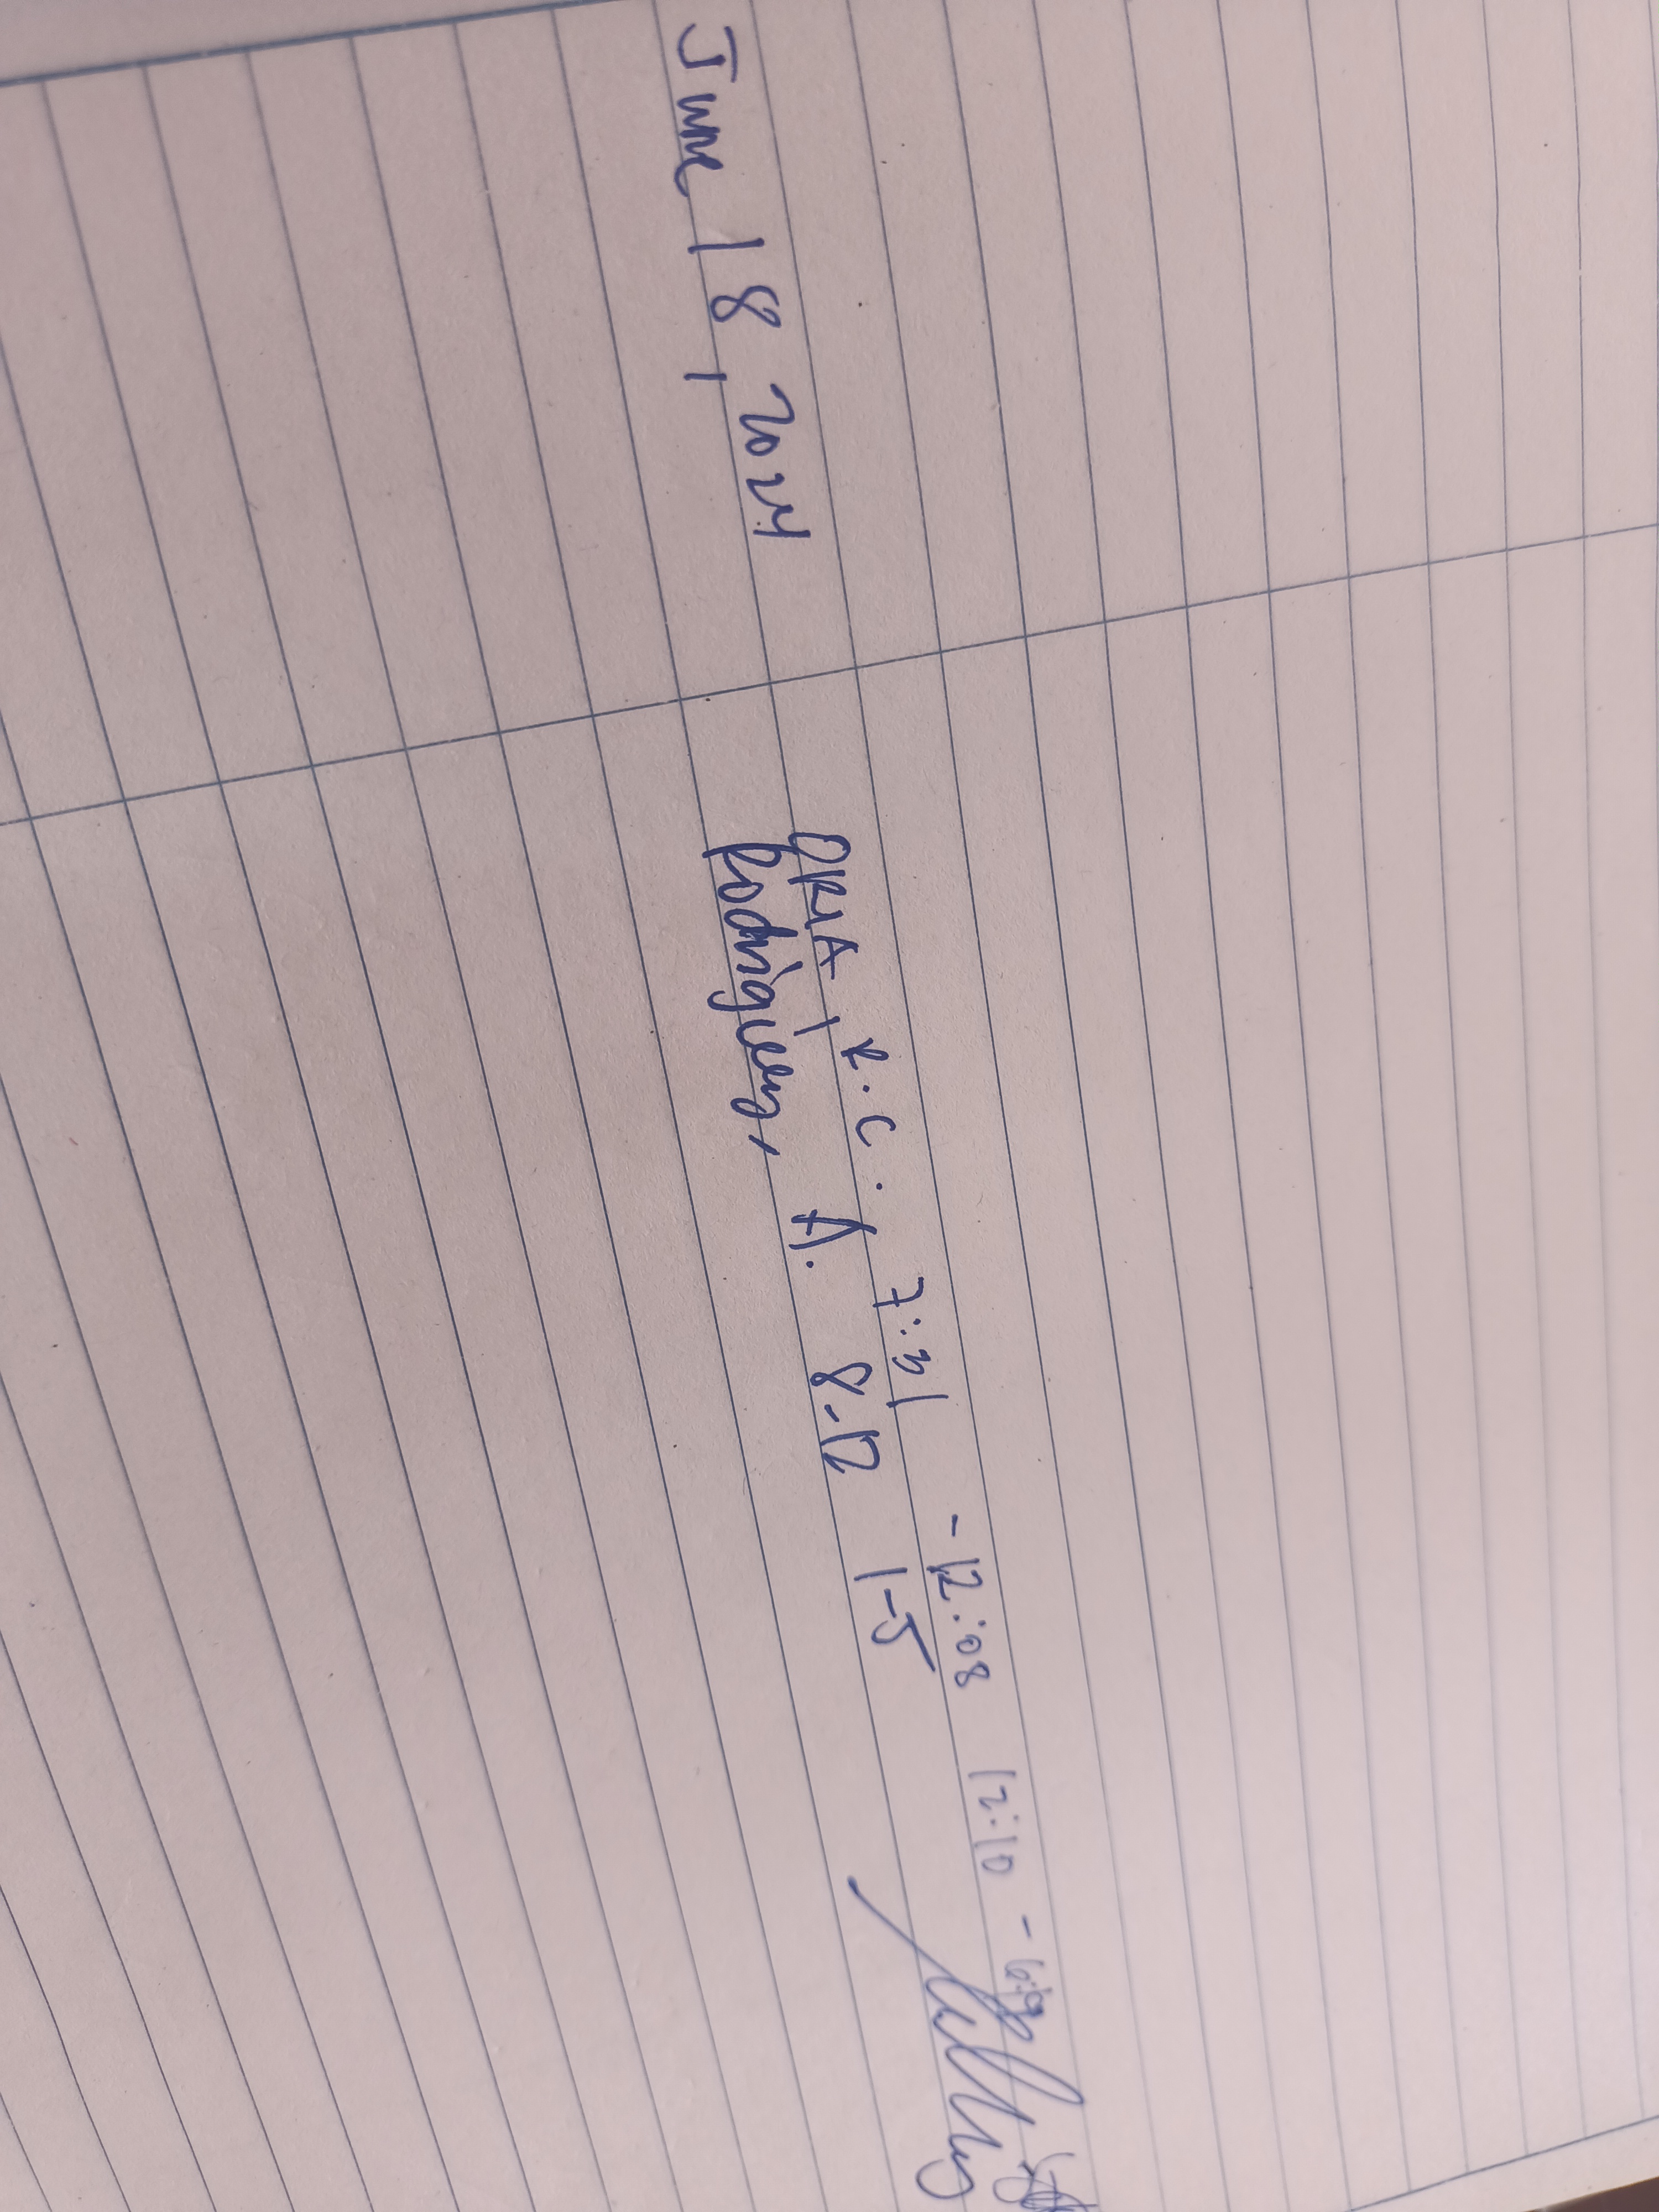 June 18, 2024
ORIA, R.C. 7:31 - 12:08 12:10 -
Rodriguez, A. 8-12 1-5